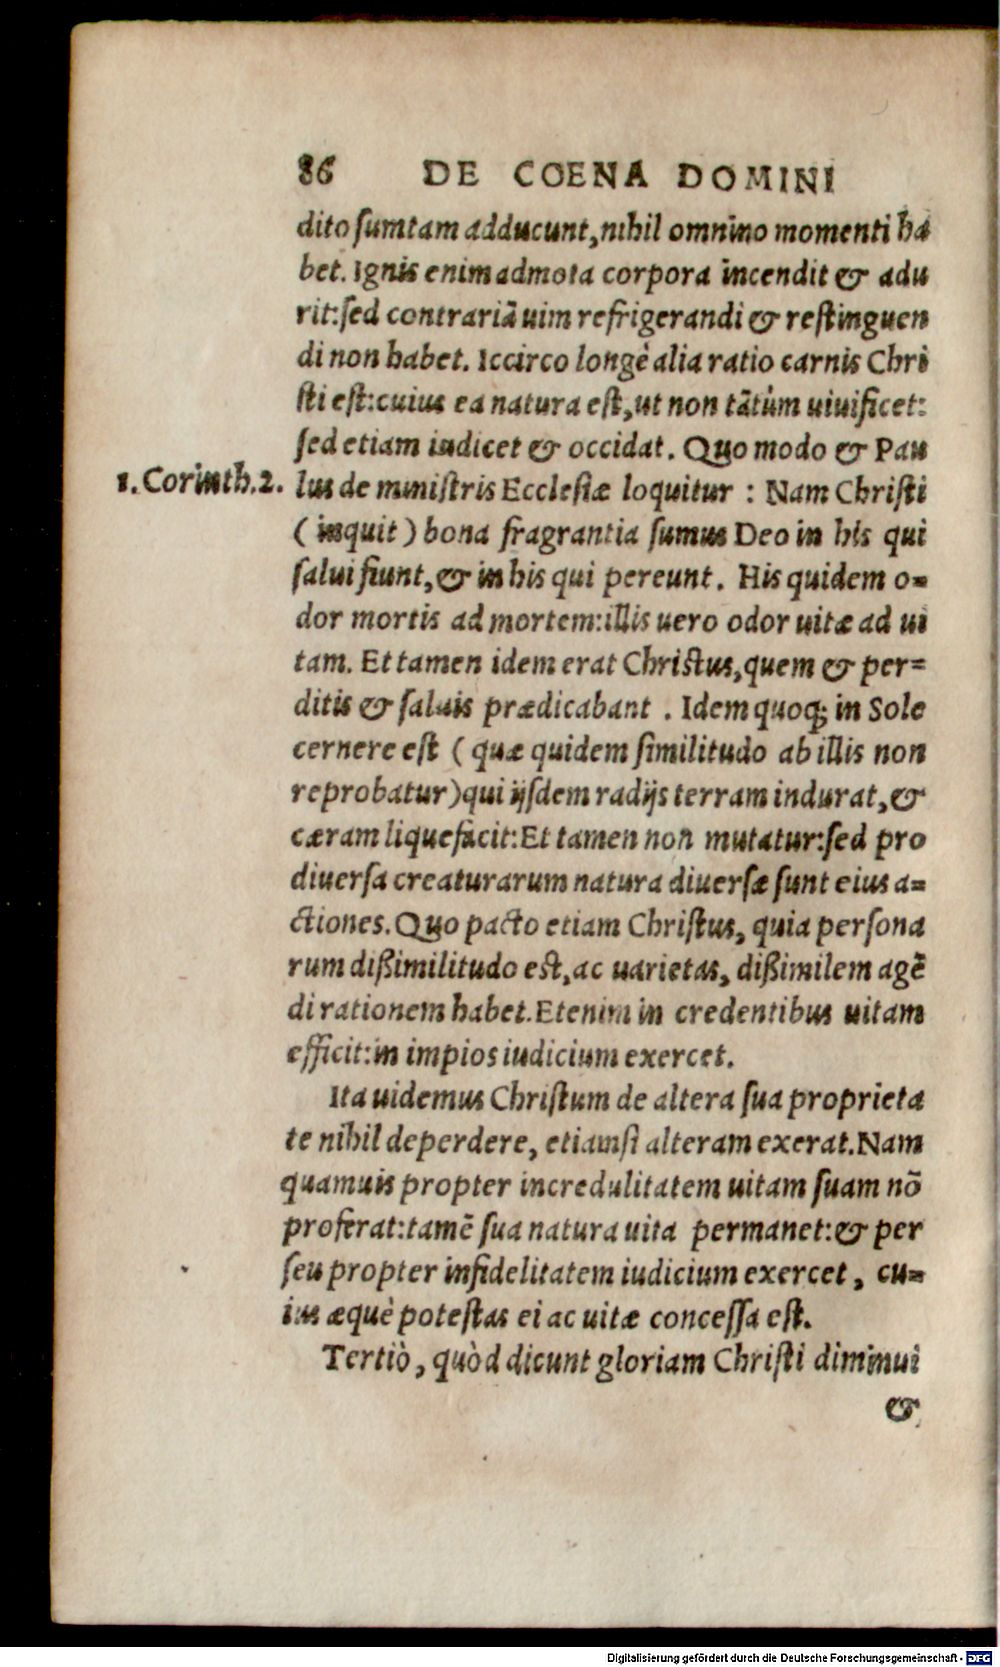 86 DE COENA DOMINI
dito sumtam adducunt, nihil omnino momenti ha
bet. Ignis enim admota corpora incendit & adu
rit: sed contrariã uim refrigerandi & restinguen
di non habet. Iccirco longè alia ratio carnis Chri
sti est: cuius ea natura est, ut non tãtùm uiuificet:
sed etiam iudicet & occidat. Quo modo & Pau
1. Corinth. 2.
lus de ministris Ecclesiæ loquitur : Nam Christi
( inquit ) bona fragrantia sumus Deo in his qui
salui fiunt, & in his qui pereunt. His quidem o=
dor mortis ad mortem: illis uero odor uitæ ad ui
tam. Et tamen idem erat Christus, quem & per=
ditis & saluis prædicabant . Idem quoq; in Sole
cernere est ( quæ quidem similitudo ab illis non
reprobatur) qui ijsdem radijs terram indurat, &
cæram liquefacit: Et tamen non mutatur: sed pro
diuersa creaturarum natura diuersæ sunt eius a=
ctiones. Quo pacto etiam Christus, quia persona
rum dißimilitudo est, ac uarietas, dißimilem agẽ
di rationem habet. Etenim in credentibus uitam
efficit: in impios iudicium exercet.
Ita uidemus Christum de altera sua proprieta
te nihil deperdere, etiamsi alteram exerat. Nam
quamuis propter incredulitatem uitam suam nõ
proferat: tamẽ sua natura uita permanet: & per
seu propter infidelitatem iudicium exercet, cu=
ius æquè potestas ei ac uitæ concessa est.
Tertiò, quòd dicunt gloriam Christi diminui
&
Digitalisierung gefördert durch die Deutsche Forschungsgemeinschaft - DFG